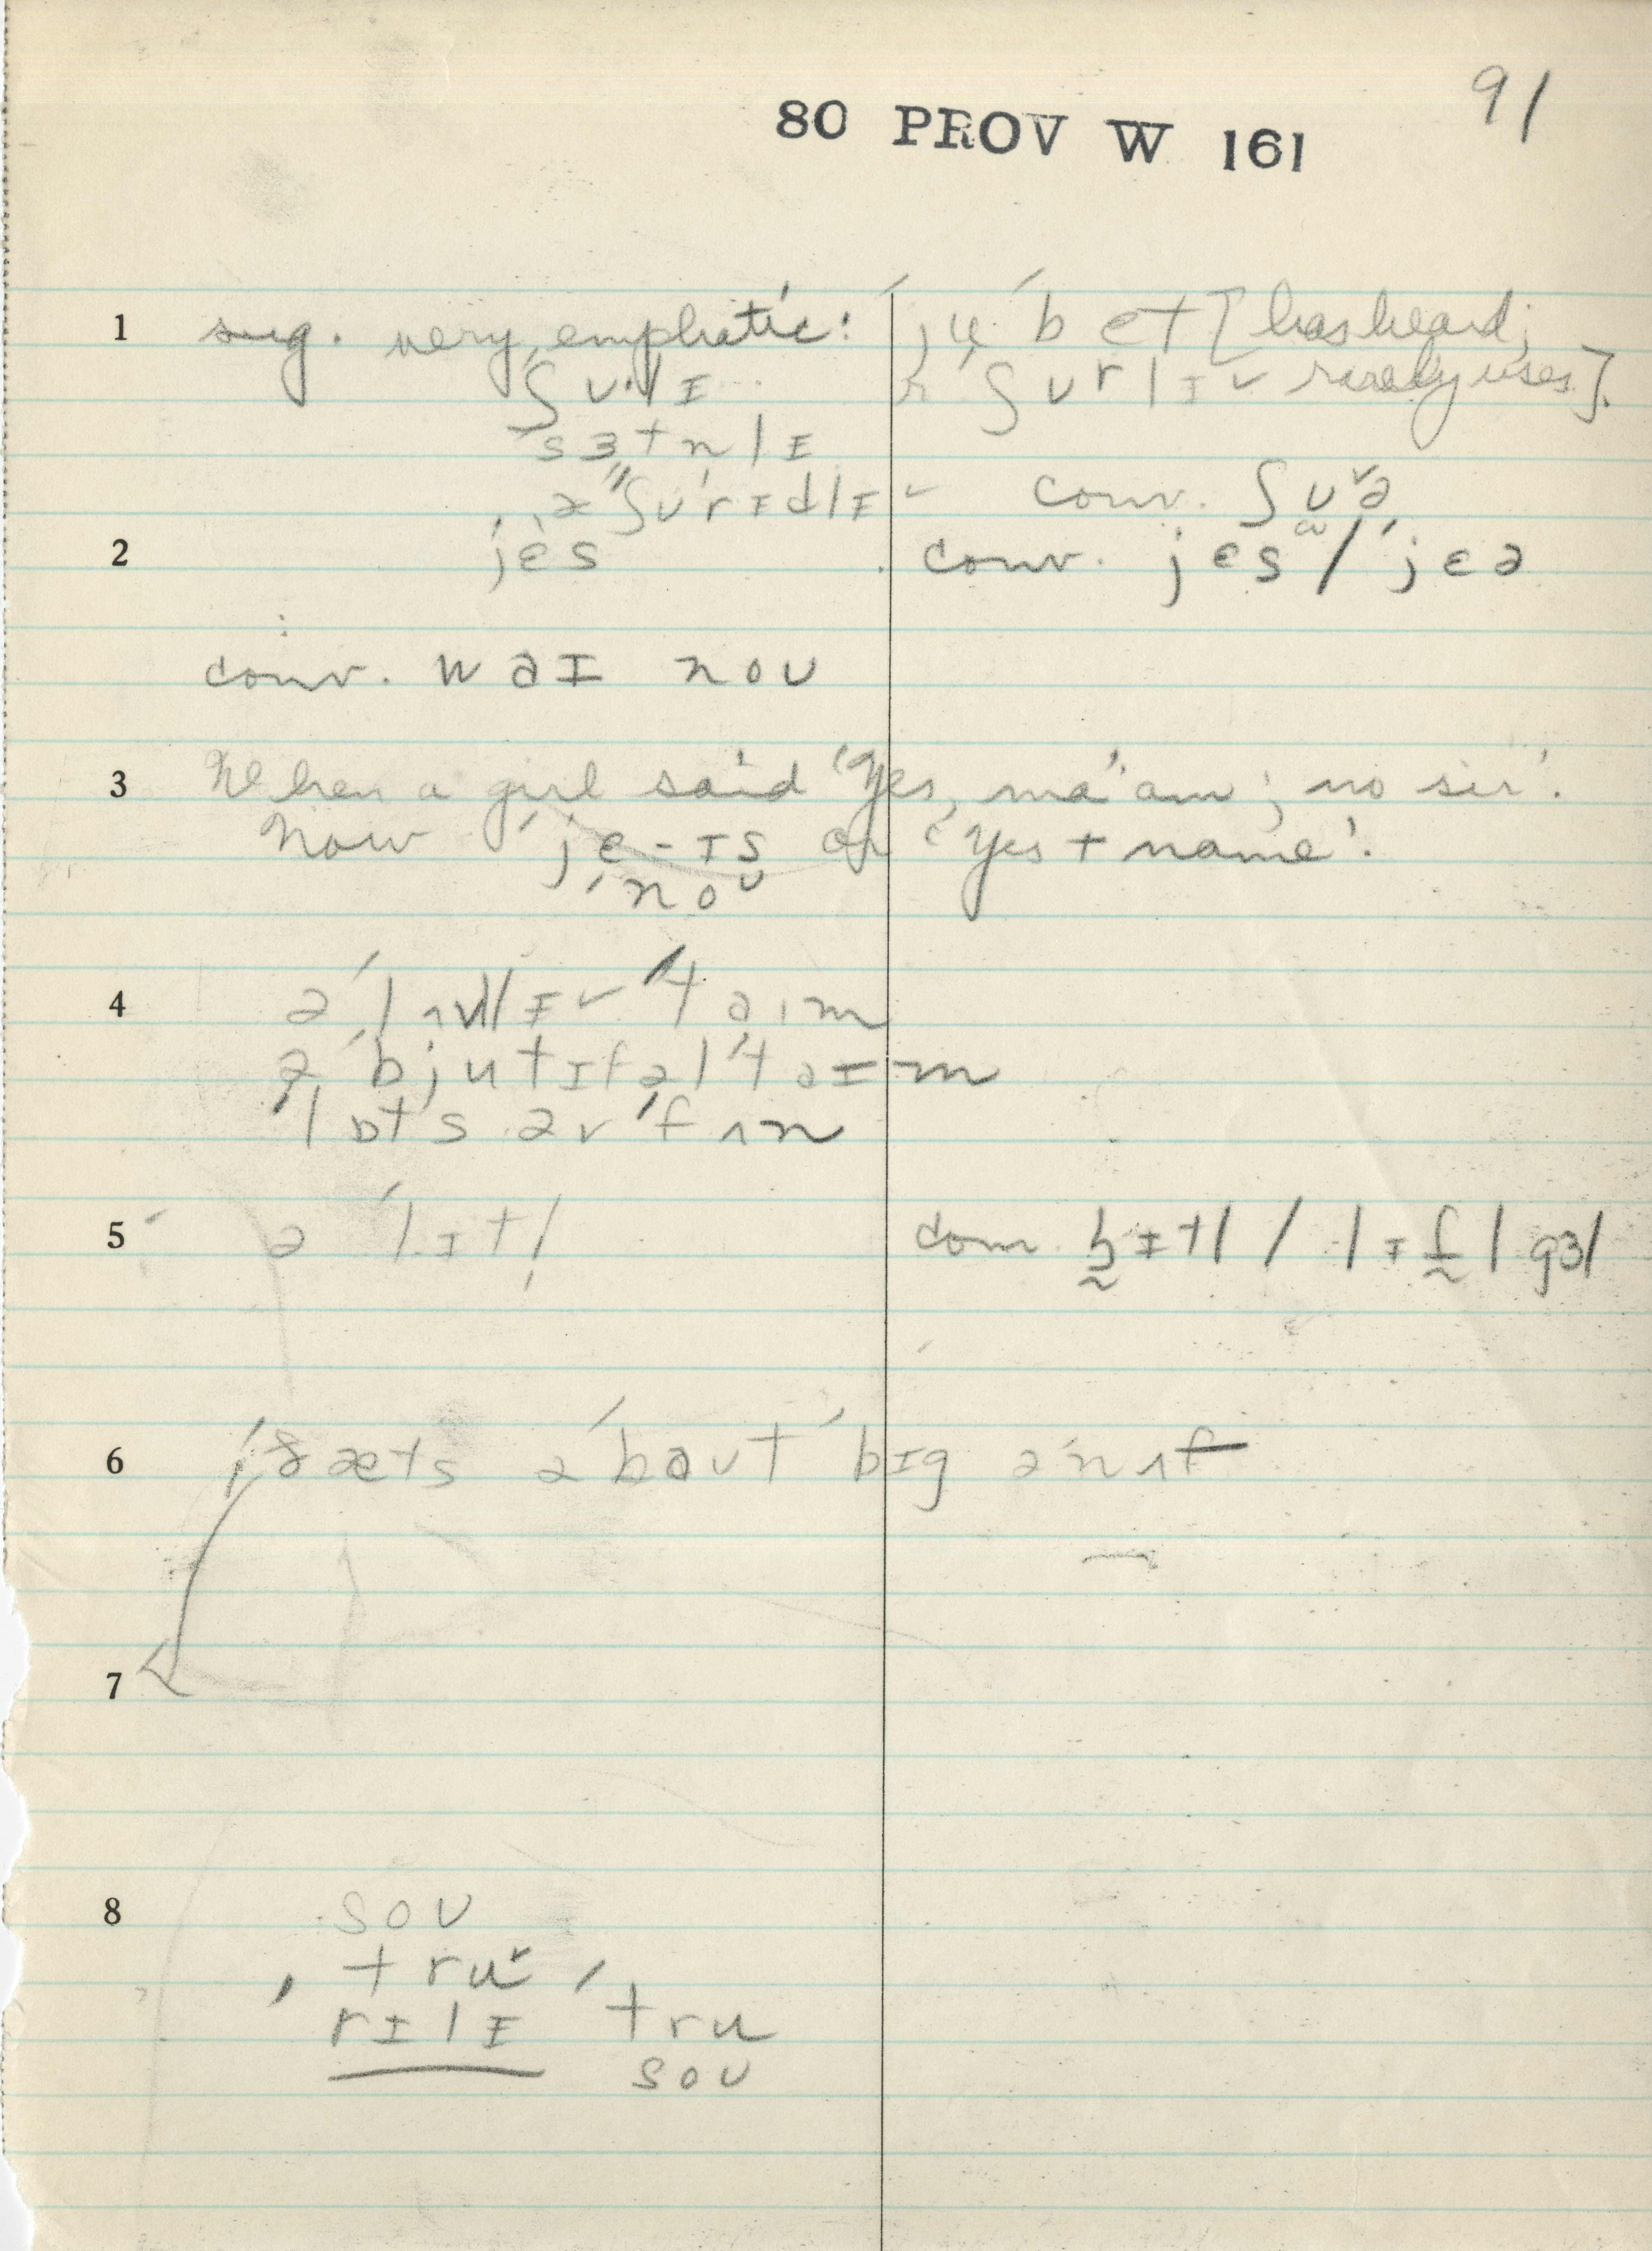 91
80 PROV W 161
1 sug. very emphatic: ju ˈbet [has heard;
ˈʃʊlɪ ʃʊrlɪ rarely uses].
ˈsɜtnlɪ
əˈʃʊrɪdlɪ conv. ʃʊə
2 jɛs conv. jɛs / ˈjɛə
conv. waɪ noʊ
3 When a girl said 'Yes, ma'am; no sir'.
Now ˈje-ɪs or 'Yes + name'.
ˈnoʊ
4 ə ˈlʌvlɪ ˈtaɪm
ə ˈbjutɪfəl ˈtaɪm
ˈlɒts əv ˈfʌn
5 ə ˈlɪtl conv. lɪtl / lɪtl gɜl
6 ˈðæts əˈbaʊt ˈbɪg əˈnʌf
7
8 soʊ
tru
ˈrɪlɪ ˈtru
soʊ